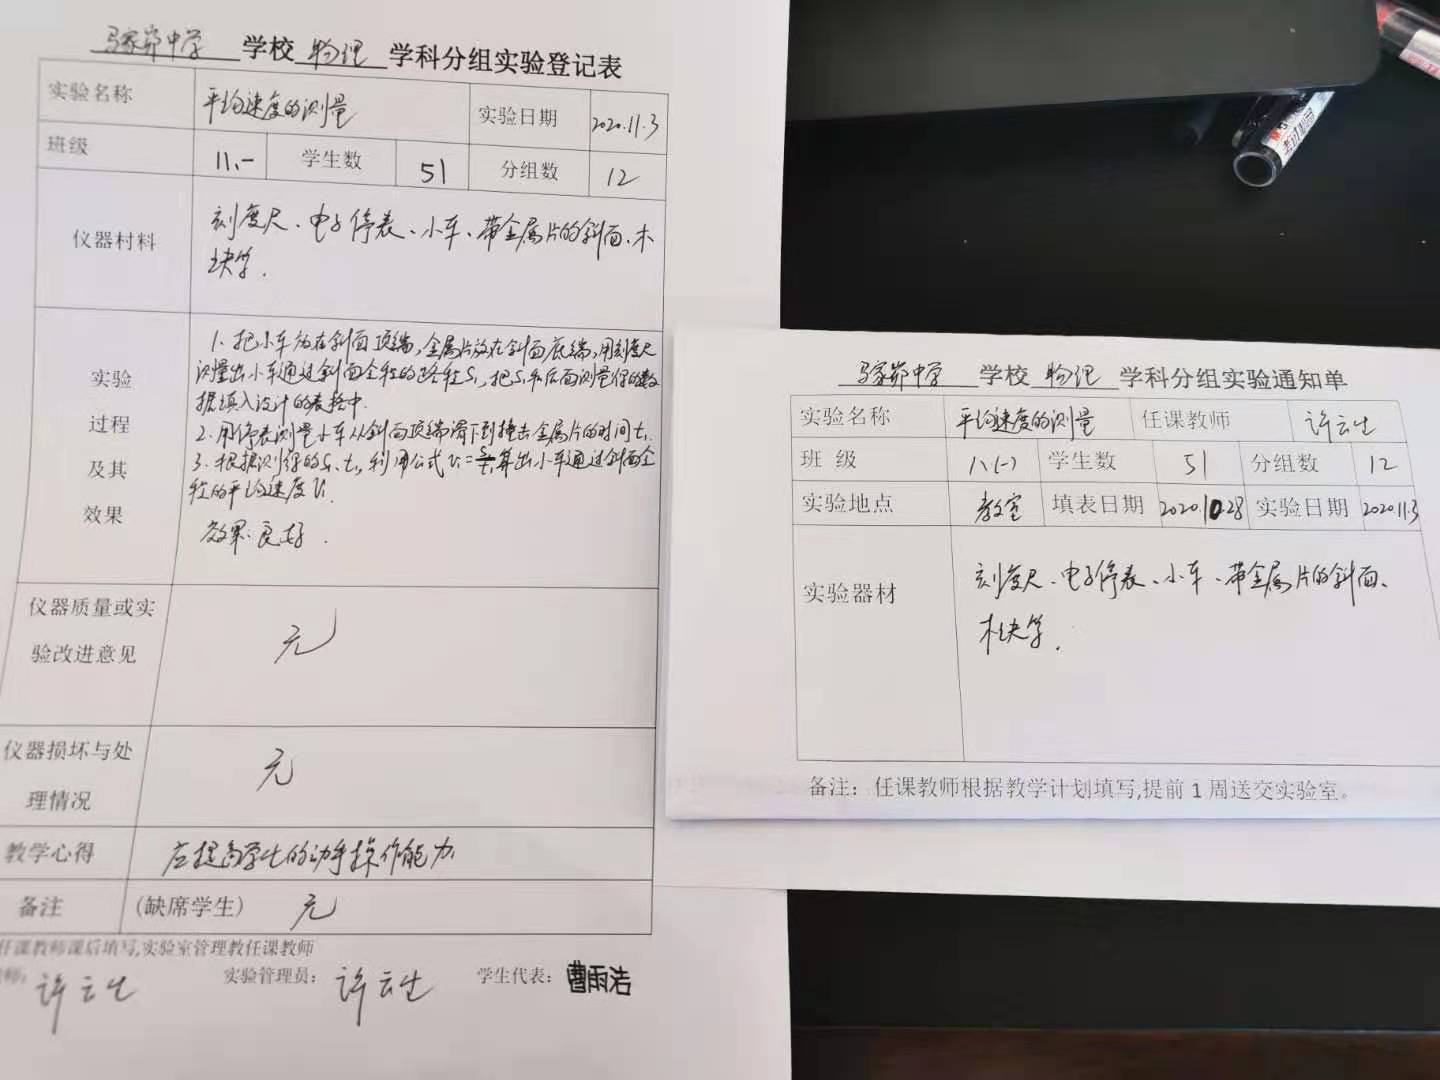 马家峁中学 学校 物理 学科分组实验登记表
实验名称 平均速度的测量 实验日期 2020.11.3
班级 八.一 学生数 51 分组数 12
仪器村料 刻度尺、电子停表、小车、带金属片的斜面、木
块等.
实验
过程
及其
效果
1. 把小车放在斜面顶端,金属片放在斜面底端,用刻度尺
测量出小车通过斜面全程的路程S₁,把S₁和后面测量得的数
据填入设计的表格中.
2. 用停表测量小车从斜面顶端滑下到撞击金属片的时间t₁.
3. 根据测得的S₁、t₁,利用公式V₁=S₁/t₁算出小车通过斜面全
程的平均速度V₁.
效果:良好.
仪器质量或实
验改进意见 无
仪器损坏与处
理情况 无
教学心得 应提高学生的动手操作能力.
备注 (缺席学生) 无
任课教师课后填写,实验室管理教任课教师
师: 许云生 实验管理员: 许云生 学生代表: 曹雨浩
马家峁中学 学校 物理 学科分组实验通知单
实验名称 平均速度的测量 任课教师 许云生
班 级 八(一) 学生数 51 分组数 12
实验地点 教室 填表日期 2020.10.28 实验日期 2020.11.3
实验器材 刻度尺、电子停表、小车、带金属片的斜面、
木块等.
备注: 任课教师根据教学计划填写,提前1周送交实验室。